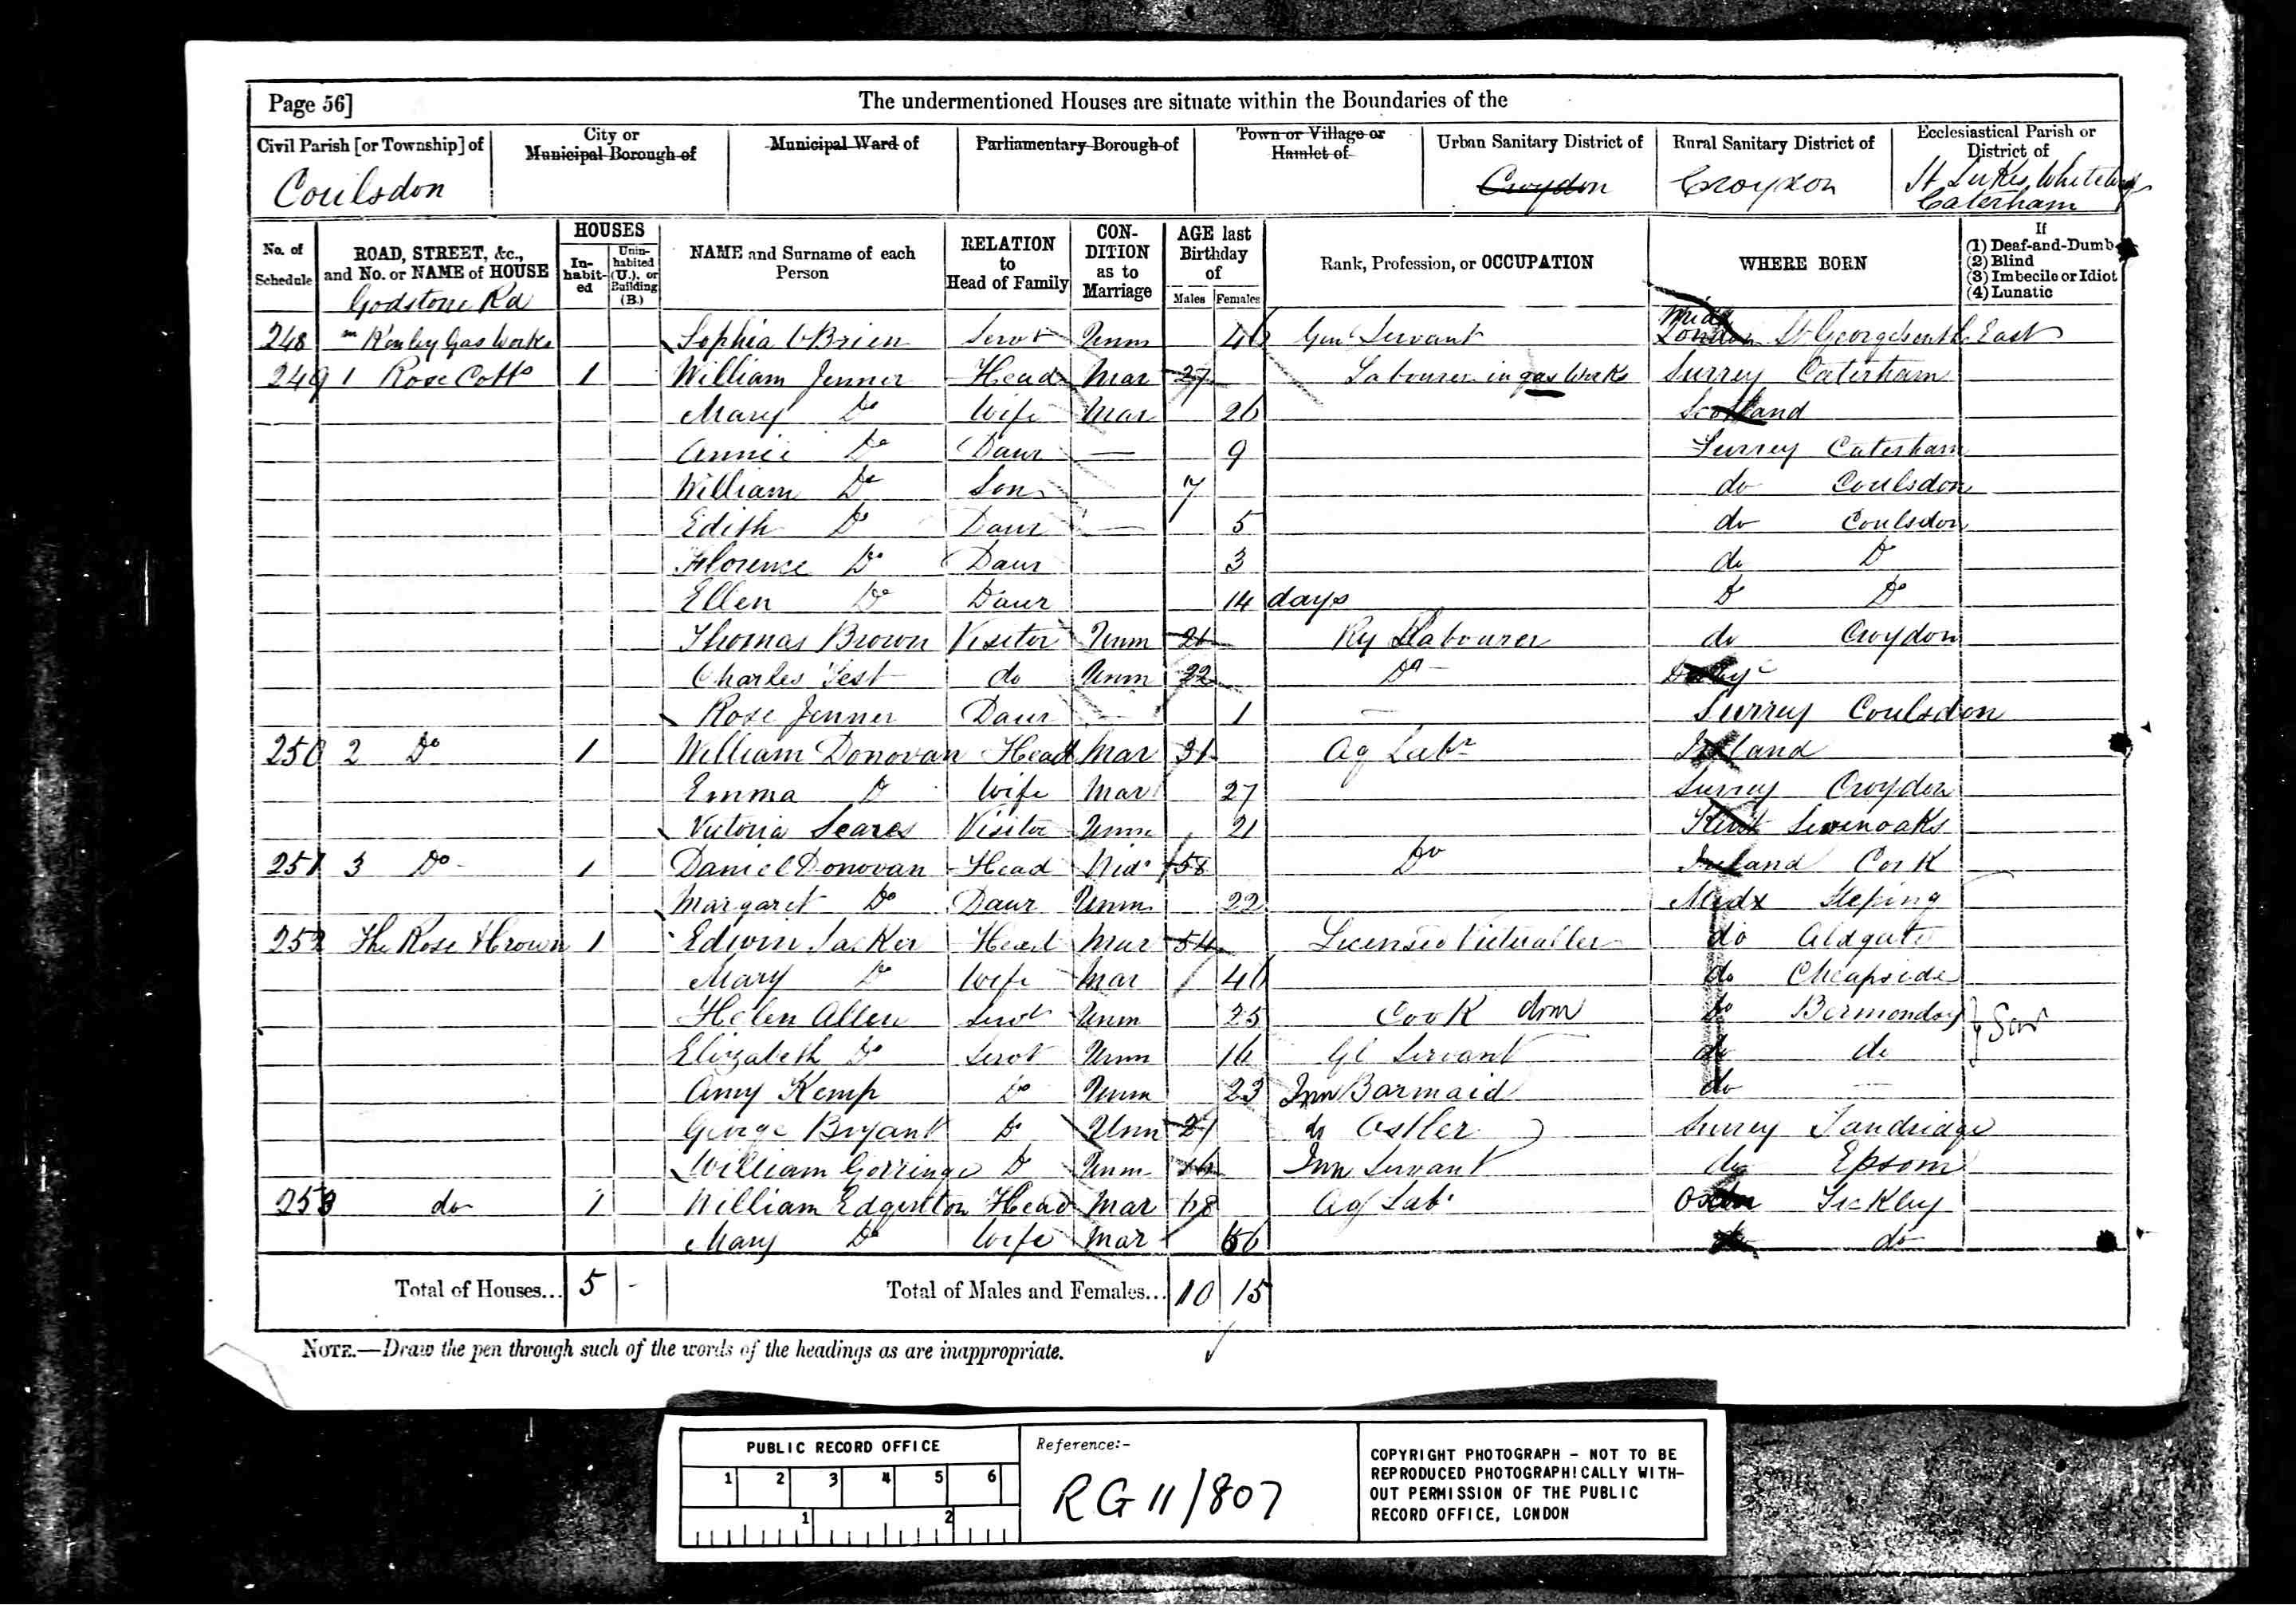 Page 56] The undermentioned Houses are situate within the Boundaries of the
Civil Parish [or Township] of City or Municipal Borough of Municipal Ward of Parliamentary Borough of Town or Village or Hamlet of Urban Sanitary District of Rural Sanitary District of Ecclesiastical Parish or District of
Coulsdon Croydon Croydon St Lukes
Caterham
No. of Schedule ROAD, STREET, &c., and No. or NAME of HOUSE HOUSES In-habit-ed Unin-habited (U.), or Building (B.) NAME and Surname of each Person RELATION to Head of Family CON-DITION as to Marriage AGE last Birthday of Males Females Rank, Profession, or OCCUPATION WHERE BORN If (1) Deaf-and-Dumb (2) Blind (3) Imbecile or Idiot (4) Lunatic
Godstone Rd
248 Kenley Gas Works Sophia O'Brien Servt Unm 46 Genl Servant Midx London St Georges in the East
249 1 Rose Cotts 1 William Jenner Head Mar 27 Labourer in gas Works Surrey Caterham
Mary Do Wife Mar 26 Scotland
Annie Do Daur — 9 Surrey Caterham
William Do Son 7 do Coulsdon
Edith Do Daur — 5 do Coulsdon
Florence Do Daur 3 do Do
Ellen Do Daur 14 days Do Do
Thomas Brown Visitor Unm 26 Ry Labourer do Croydon
Charles Test do Unm 22 Do Derby
Rose Jenner Daur — 1 — Surrey Coulsdon
250 2 Do 1 William Donovan Head Mar 31 Ag Labr Ireland
Emma Do Wife Mar 27 Surrey Croydon
Victoria Seares Visitor Unm 21 Kent Sevenoaks
251 3 Do 1 Daniel Donovan Head Wid 58 Do Ireland Cork
Margaret Do Daur Unm 22 Midx Steping
252 The Rose & Crown 1 Edwin Mar 54 Licensed Victualler do Aldgate
Mary Do Wife Mar 46 do Cheapside
Helen Allen Servt Unm 25 Cook dom do Bermondsy
Elizabeth Do Servt Unm 16 Gl Servant do do
Amy Kemp Do Unm 23 Inn Barmaid do —
George Bryant Do Unm 21 do Ostler Surrey Tandridge
William Gorringe Do Unm 16 Inn Servant do Epsom
253 do 1 William Edgerton Head Mar 68 Ag Lab Oxon
Mary Do Wife Mar 56 do do
Total of Houses... 5 - Total of Males and Females... 10 15
NOTE.—Draw the pen through such of the words of the headings as are inappropriate.
PUBLIC RECORD OFFICE
1 2 3 4 5 6
1 2
Reference:-
RG 11/807
COPYRIGHT PHOTOGRAPH – NOT TO BE
REPRODUCED PHOTOGRAPHICALLY WITH-
OUT PERMISSION OF THE PUBLIC
RECORD OFFICE, LONDON